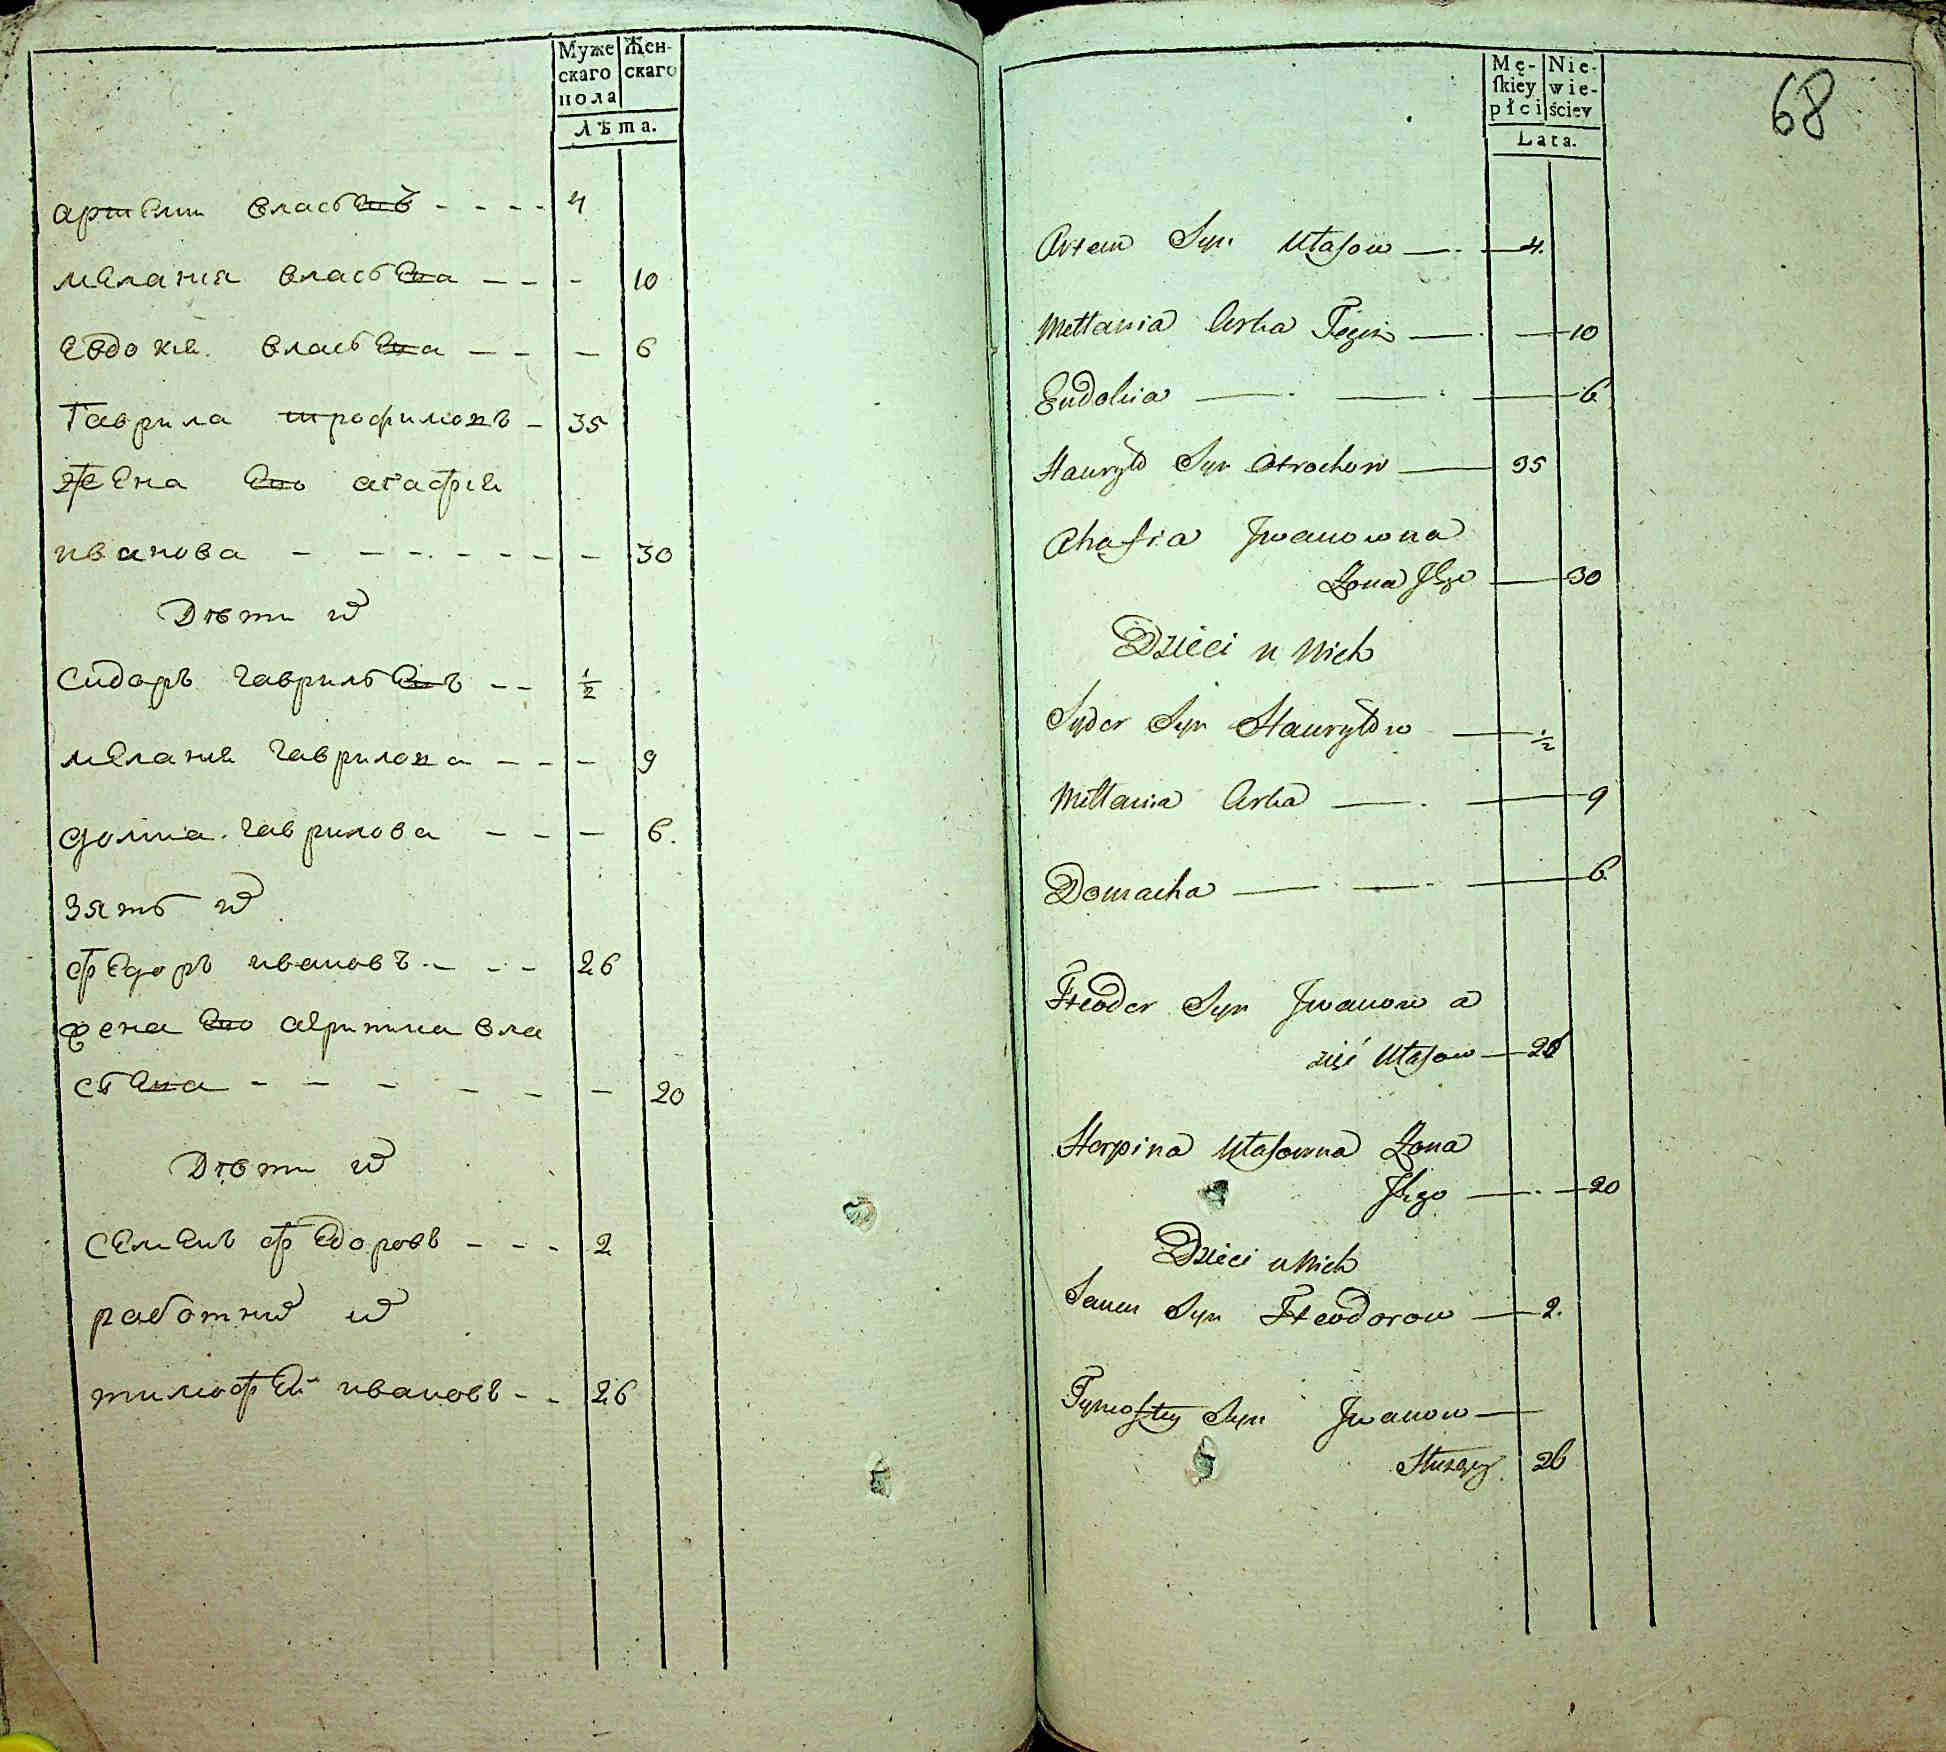 Муже
скаго
пола
Жен-
скаго
Лѣта.
артеми власьевъ - - - - 4
мелания власьева - - - 10
евдокия власьева - - - 6
Гаврила трофимовъ - 35
жена Его агафия
иванова - - - - - - - 30
Дѣти и^х
Сидоръ гаврильевъ - - 1/2
мелания гаврилова - - - 9
домна гаврилова - - - 6.
Зять и^х
федоръ ивановъ - - - 26
жена Его агрипина вла
сьева - - - - - - 20
Дѣти и^х
семенъ федоровъ - - - 2
работни^к и^х
тимофей ивановъ - - 26
Mę-
ſkiey
płci
Nie-
wie-
ściey
Lata.
68
Artem Syn Ułasow — 4.
Mełłania Corka Tegoż — 10
Eudokia — — — 6
Hauryło Syn Otrochow — 35
Ahafia Iwanowna
Zona Jego — 30
Dzieci u Nich
Sydor Syn Hauryłow — 1/2
Mełłania Corka — — 9
Domacha — — — 6
Fteodor Syn Iwanow a
zięć Ułasow — 26
Horpina Ułasowna Zona
Jego — — 20
Dzieci u Nich
Samen Syn Fteodorow — 2.
Tymoftey Syn Iwanow —
Służący 26